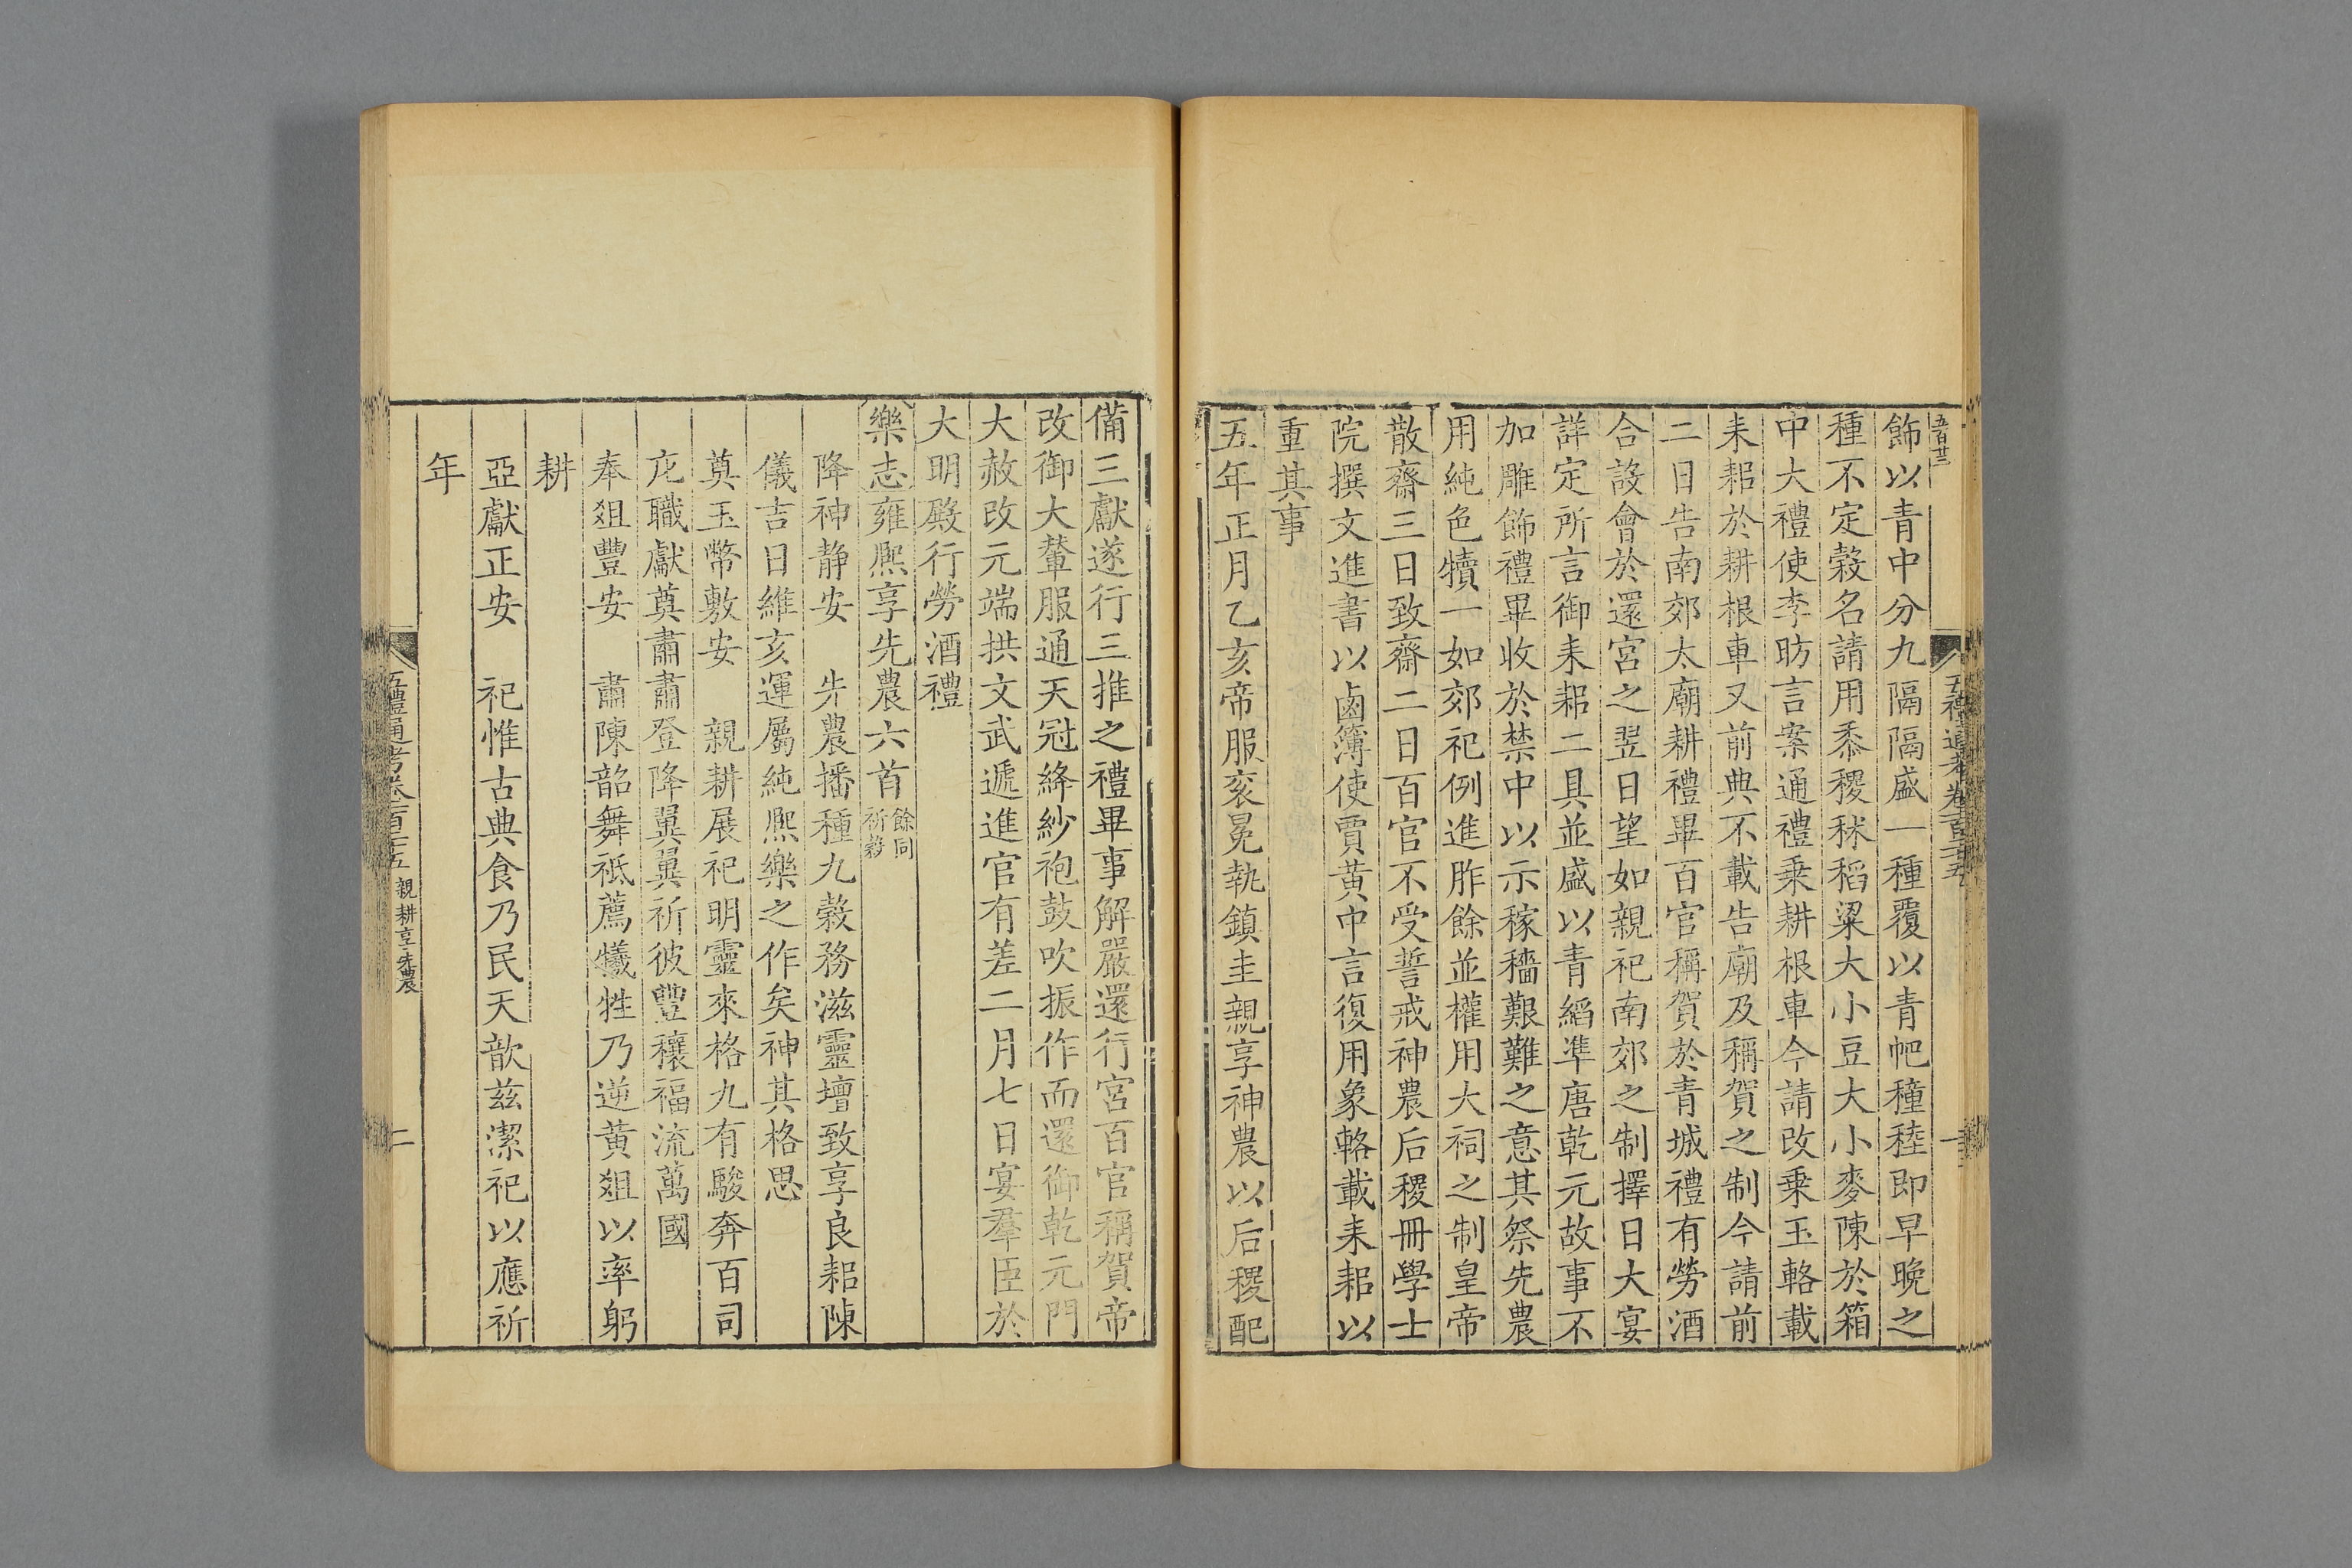 五百廿三
五禮通考卷一百二十五
飾以青中分九隔隔盛一種覆以青帊穜稑即早晚之
種不定穀名請用黍稷秫稻粱大小豆大小麥陳於箱
中大禮使李昉言案通禮乘耕根車今請改乘玉輅載
耒耜於耕根車又前典不載告廟及稱賀之制今請前
二日告南郊太廟耕禮畢百官稱賀於青城禮有勞酒
合設會於還宮之翌日望如親祀南郊之制擇日大宴
詳定所言御耒耜二具並盛以青縚準唐乾元故事不
加雕飾禮畢收於禁中以示稼穡艱難之意其祭先農
用純色犢一如郊祀例進胙餘並權用大祠之制皇帝
散齋三日致齋二日百官不受誓戒神農后稷冊學士
院撰文進書以鹵簿使賈黃中言復用象輅載耒耜以
重其事
五年正月乙亥帝服袞冕執鎮圭親享神農以后稷配
備三獻遂行三推之禮畢事解嚴還行宮百官稱賀帝
改御大輦服通天冠絳紗袍鼓吹振作而還御乾元門
大赦改元端拱文武遞進官有差二月七日宴羣臣於
大明殿行勞酒禮
樂志雍熙享先農六首餘同祈穀
降神靜安 先農播種九穀務滋靈壇致享良耜陳
儀吉日維亥運屬純熙樂之作矣神其格思
奠玉幣敷安 親耕展祀明靈來格九有駿奔百司
庀職獻奠肅肅登降翼翼祈彼豐穰福流萬國
奉俎豐安 肅陳韶舞祗薦犧牲乃逆黃俎以率躬
耕
亞獻正安 祀惟古典食乃民天歆茲潔祀以應祈
年
五禮通考卷一百二十五 親耕享先農 二